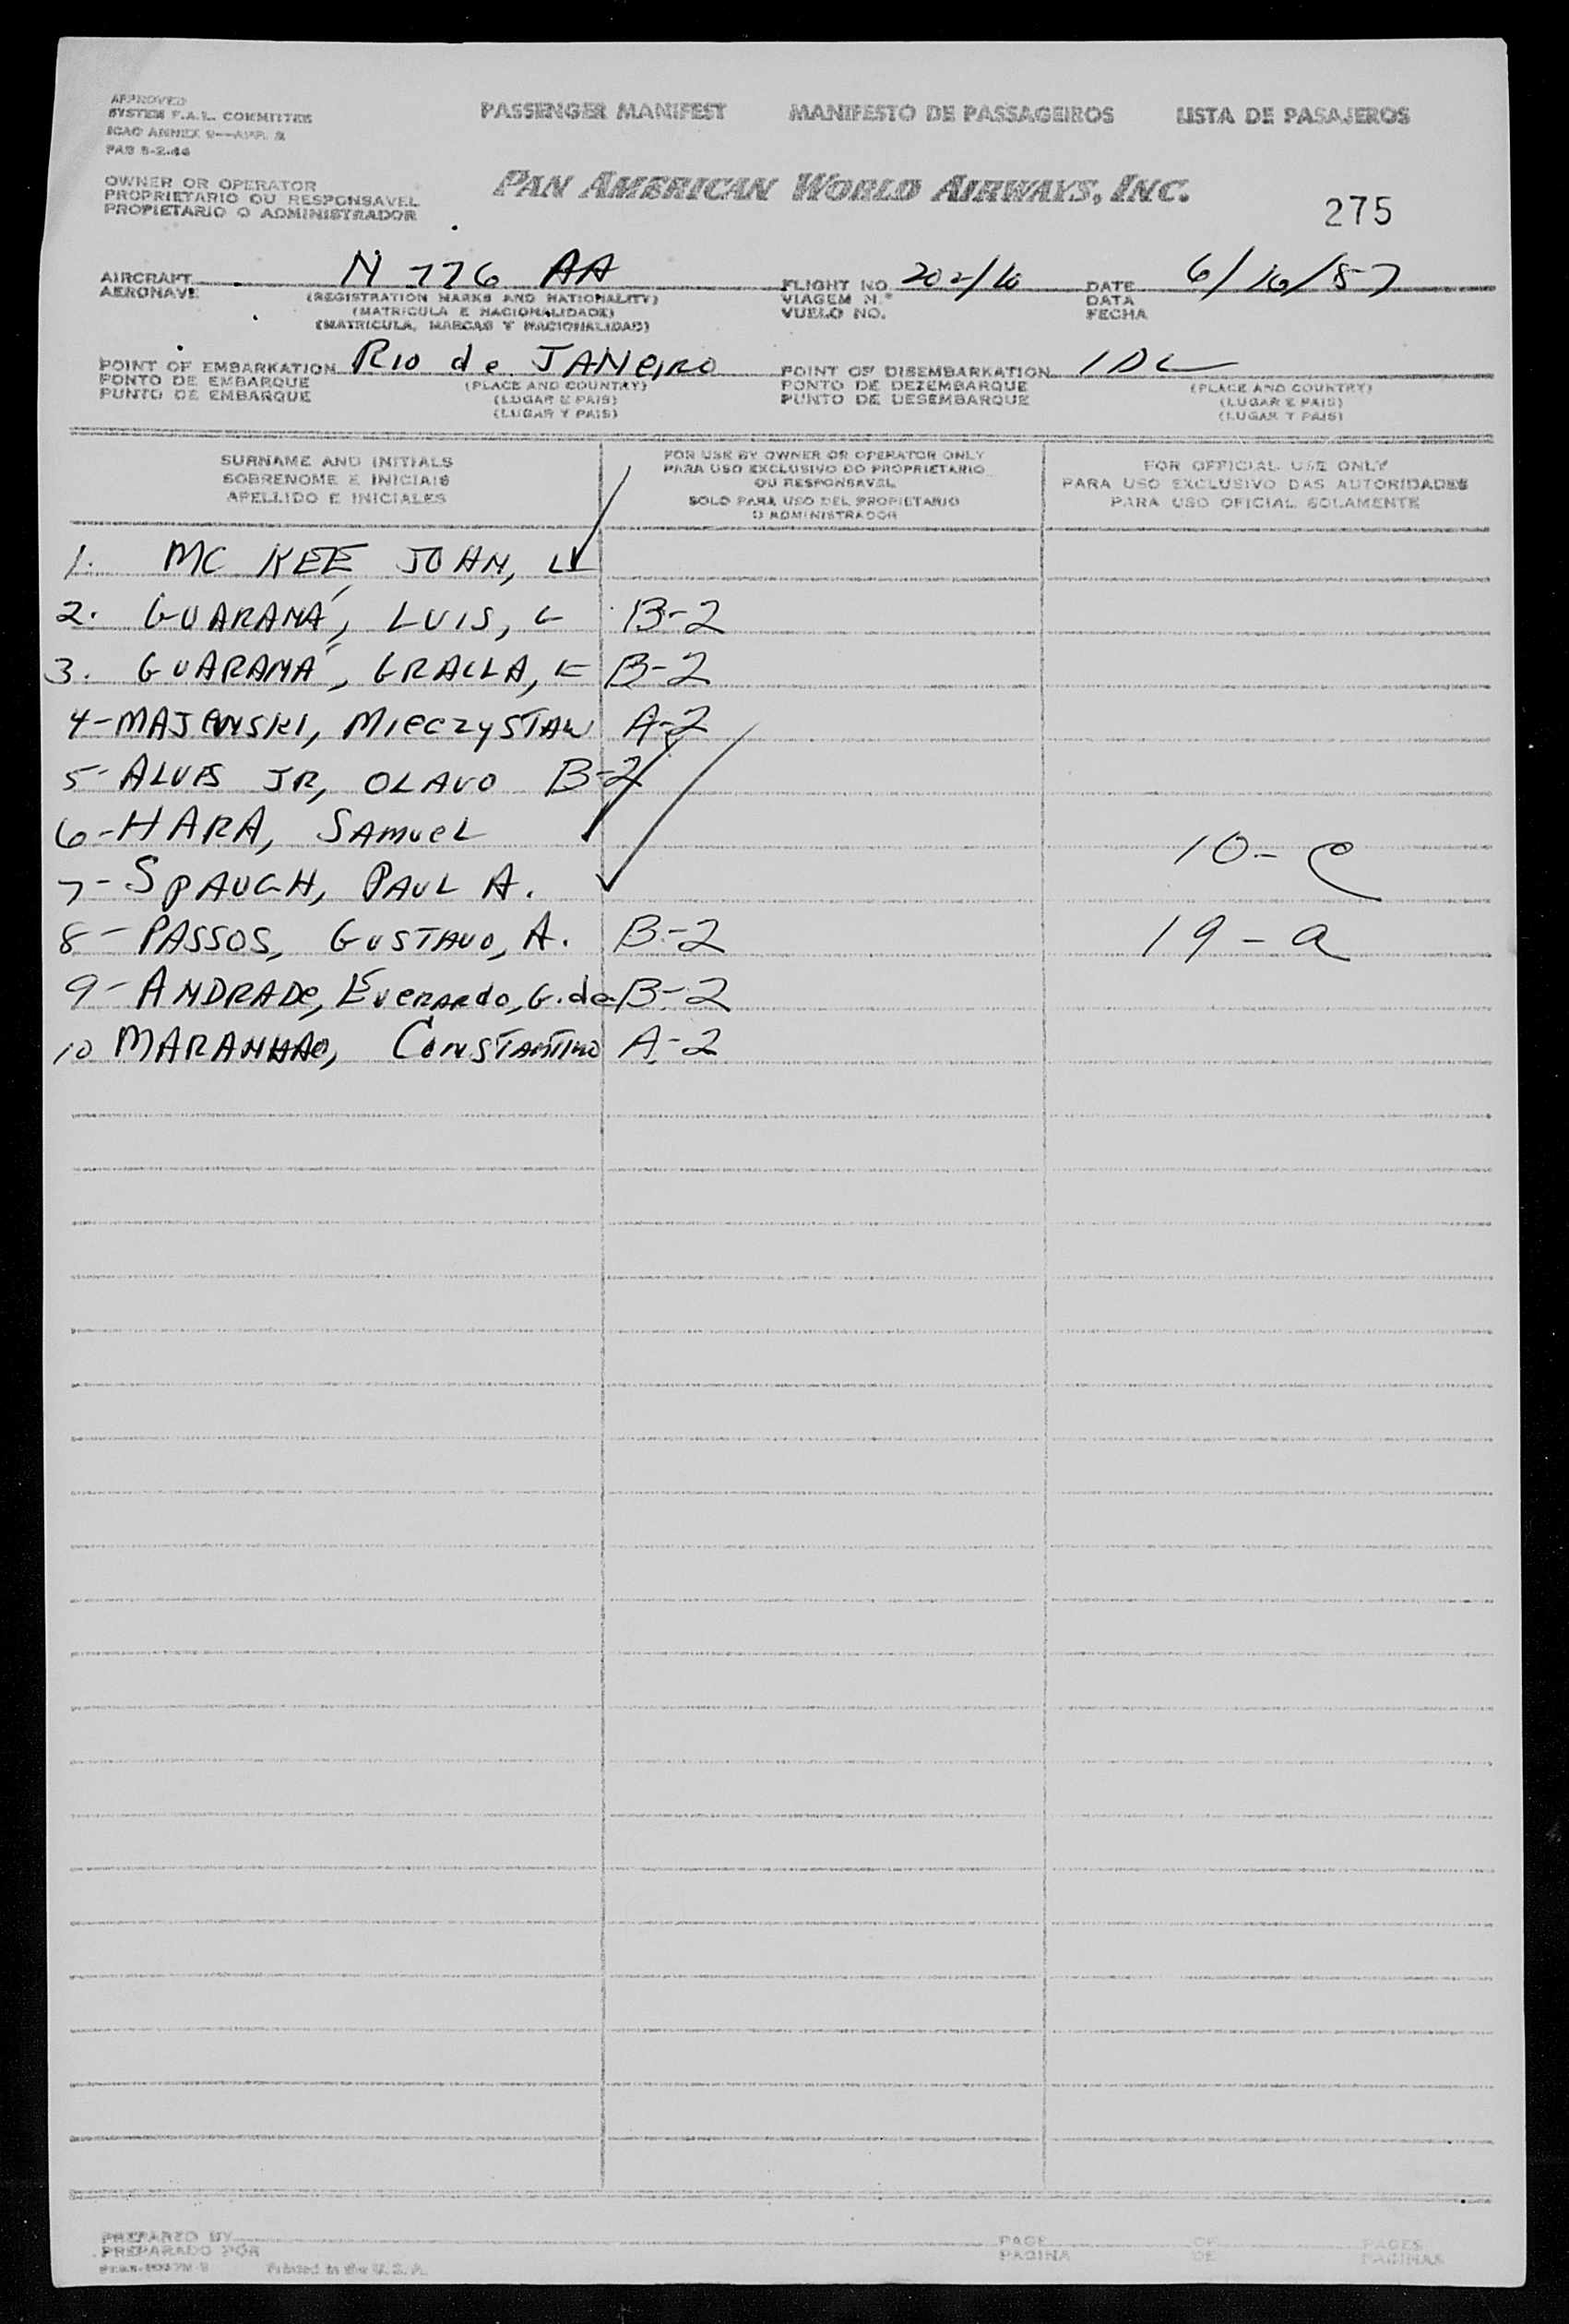 APPROVED
SYSTEM F.A.L. COMMITTEE
ICAO ANNEX 9—APP. 2
PAS 5-2-46
PASSENGER MANIFEST MANIFESTO DE PASSAGEIROS LISTA DE PASAJEROS
OWNER OR OPERATOR
PROPRIETARIO OU RESPONSAVEL
PROPIETARIO O ADMINISTRADOR
PAN AMERICAN WORLD AIRWAYS, INC.
275
AIRCRAFT N 776 AA FLIGHT NO. 202/16 DATE 6/16/57
AERONAVE (REGISTRATION MARKS AND NATIONALITY) VIAGEM N.º DATA
(MATRICULA E NACIONALIDADE) VUELO NO. FECHA
(MATRICULA, MARCAS Y NACIONALIDAD)
POINT OF EMBARKATION Rio de JANeiRo POINT OF DISEMBARKATION IDL
PONTO DE EMBARQUE (PLACE AND COUNTRY) PONTO DE DEZEMBARQUE (PLACE AND COUNTRY)
PUNTO DE EMBARQUE (LUGAR E PAIS) PUNTO DE DESEMBARQUE (LUGAR E PAIS)
(LUGAR Y PAIS) (LUGAR Y PAIS)
SURNAME AND INITIALS
SOBRENOME E INICIAIS
APELLIDO E INICIALES
FOR USE BY OWNER OR OPERATOR ONLY
PARA USO EXCLUSIVO DO PROPRIETARIO
OU RESPONSAVEL
SOLO PARA USO DEL PROPIETARIO
O ADMINISTRADOR
FOR OFFICIAL USE ONLY
PARA USO EXCLUSIVO DAS AUTORIDADES
PARA USO OFICIAL SOLAMENTE
1. MC KEE JOHN, L
2. GUARANÁ, LUIS, C B-2
3. GUARANÁ, GRACLA, E B-2
4-MAJEWSKI, MIECZYSTAW A-2
5-ALVES JR, OLAVO B-2
6-HARA, SAMUEL
10-C
7-SPAUGH, PAUL A.
8-PASSOS, GUSTAVO, A. B-2 19-a
9-ANDRADe, EveRARdo, G. de B-2
10 MARANHAO, CONSTANTINO A-2
PREPARED BY PAGE OF PAGES
PREPARADO POR PAGINA DE PAGINAS
Printed in the U. S. A.